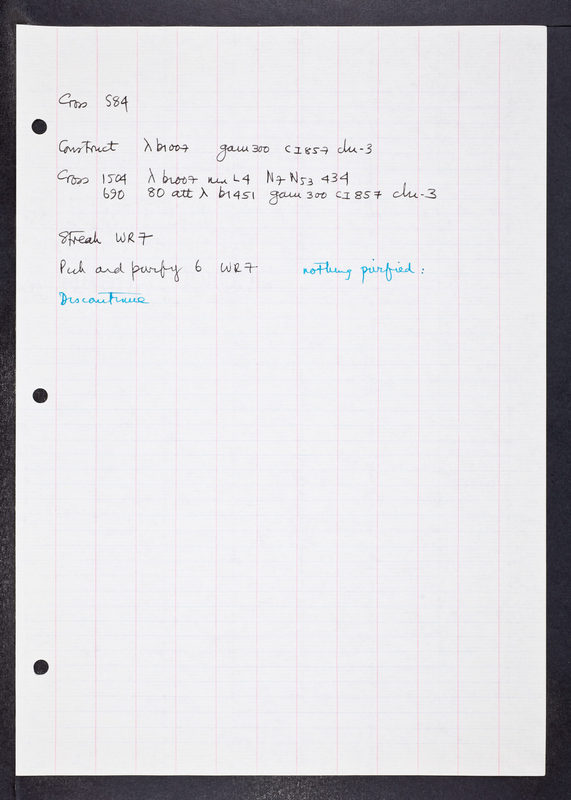 Cross 584
Construct λ b1007 gam 300 cI857 chi-3
Cross 1504 λ b1007 nin L4 N7 N53 434
690 80 att λ b1451 gam 300 cI857 chi-3
Streak WR7
Pick and purify 6 WR7 nothing purified:
Discontinue